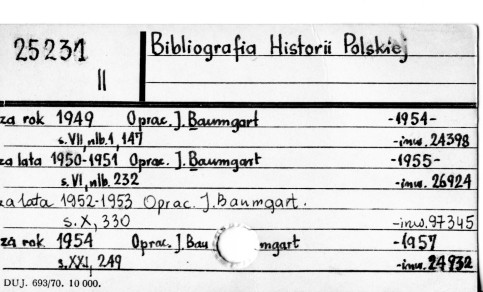 25231
II
Bibliografia Historii Polskiej
za rok 1949 Oprac. J. Baumgart -1954-
s. VII, nlb. 1, 147 -inw. 24398
za lata 1950-1951 Oprac. J. Baumgart -1955-
s. VI, nlb. 232 -inw. 26924
za lata 1952-1953 Oprac. J. Baumgart.
s. X, 330 -inw. 97345
za rok 1954 Oprac. J. Bau mgart -1957
s. XXI, 249 -inw. 24932
DUJ. 693/70. 10 000.